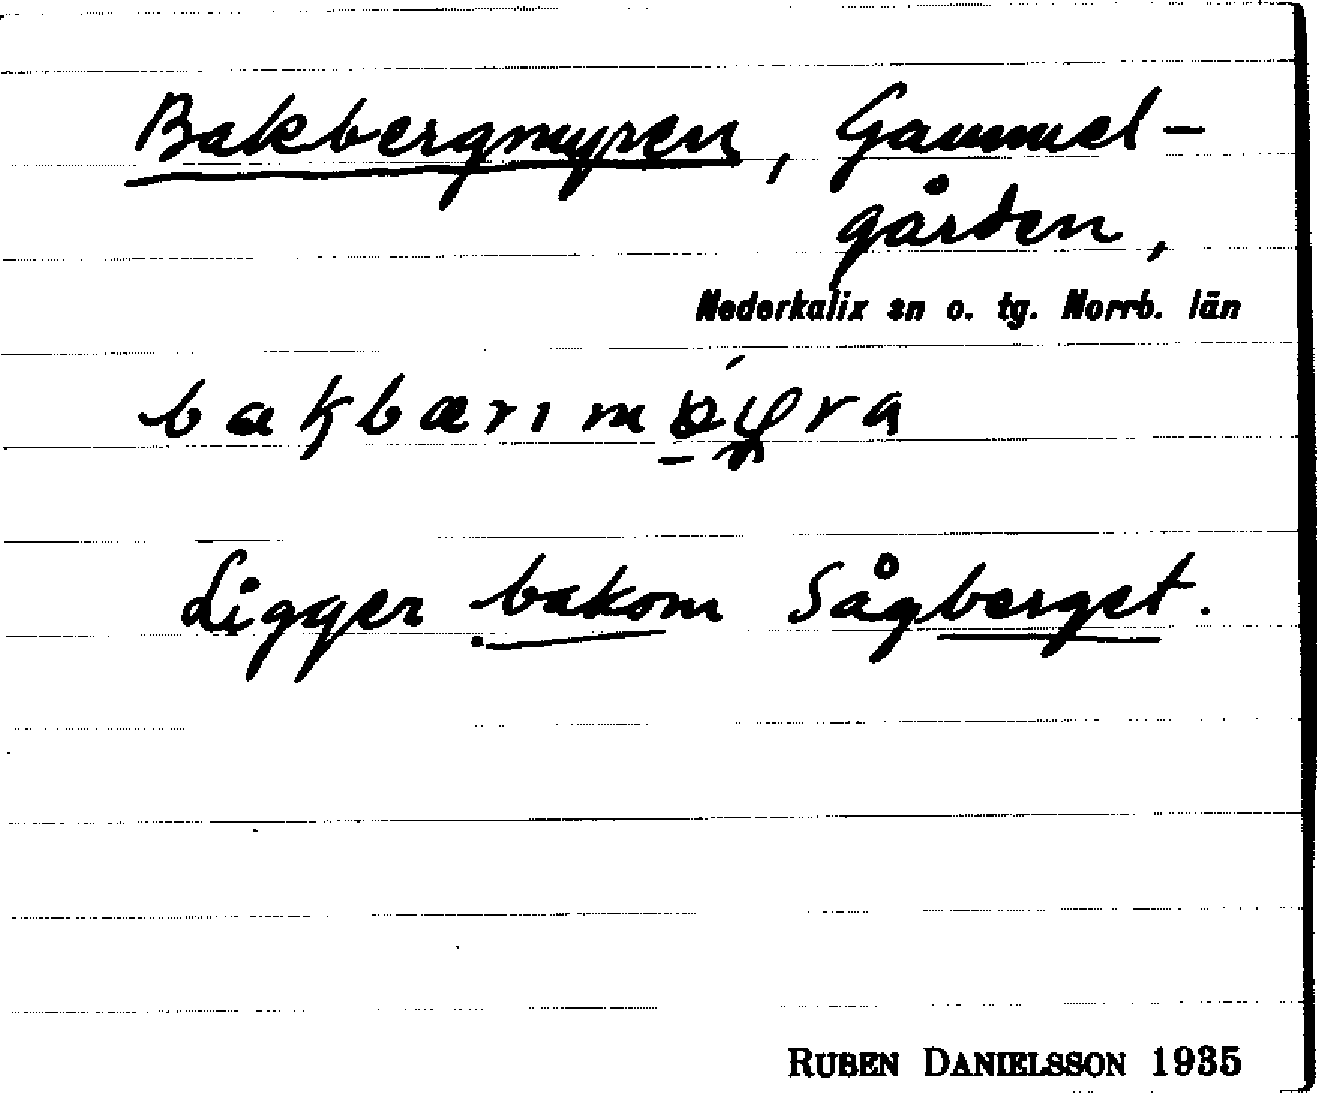 Bakbergmyren, Gammel-
gården,
Nederkalix sn o. tg. Norrb. län
Ligger bakom Sågberget.
RUBEN DANIELSSON 1935